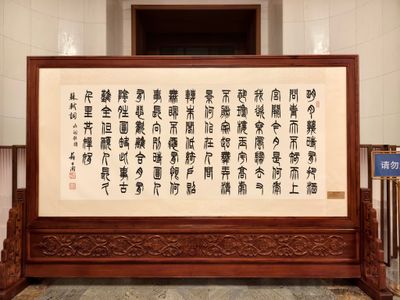 明月幾時有把酒
問青天不知天上
宮闕今夕是何年
我欲乘風歸去又
恐瓊樓玉宇高處
不勝寒起舞弄清
影何似在人間
轉朱閣低綺戶照
無眠不應有恨何
事長向別時圓人
有悲歡離合月有
陰晴圓缺此事古
難全但願人長久
千里共嬋娟
蘇軾詞 水調歌頭
请勿